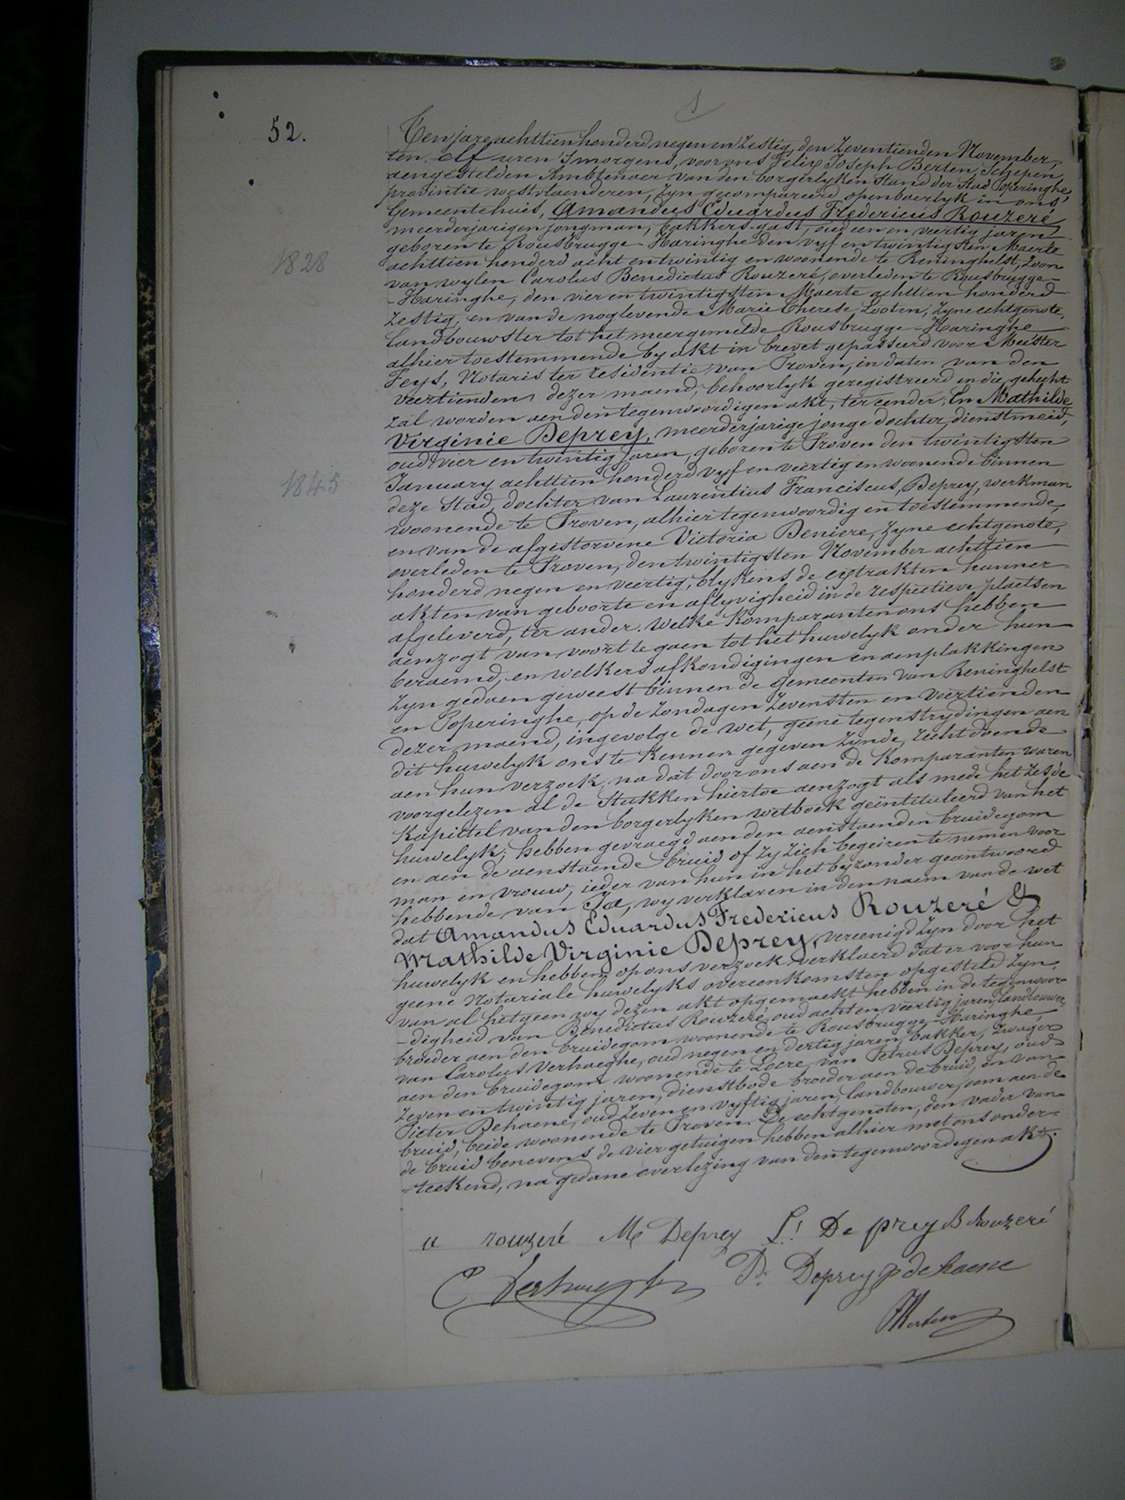 52.
Ten jare achttien honderd negen en Zestig, den Zeventienden November,
ten elf uren 's morgens, voor ons Felix Joseph Berten, Schepen
aengestelden Ambtenaer van den borgerlyken stand der Stad Poperinghe,
provintie westvlaenderen, Zyn gecompareerd openbaerlyk in ons
Gemeentehuis, Amandus Eduardus Fredericus Rouzeré
meerderjarigen jongman, bakkers gast, oud een en veertig jaren
geboren te Rousbrugge-Haringhe den vyf en twintigsten Maerte
1828
achttien honderd acht en twintig en woonende te Reninghelst, Zoon
van wylen Carolus Benedictus Rouzeré, overleden te Rousbrugge-
-Haringhe, den vier en twintigsten Maerte achttien honderd
Zestig, en van de noglevende Marie Therese Looten, Zyne echtgenote,
landbouwster tot het meergemelde Rousbrugge-Haringhe
alhier toestemmende by akt in brevet gepasseerd voor Meester
Feys, Notaris ter residentie van Proven, in daten van den
veertienden dezer maend, behoorlyk geregistreerd en die gehecht
zal worden aen den tegenwoordigen akt, ter eender. En Mathilde
Virginie Deprey, meerderjarige jonge dochter, dienstmeid,
oud vier en twintig jaren, geboren te Proven den twintigsten
1845
January achttien honderd vyf en veertig en woonende binnen
deze Stad, dochter van Laurentius Franciscus Deprey, werkman
woonende te Proven, alhier tegenwoordig en toestemmende,
en van de afgestorvene Victoria Beniere, Zyne echtgenote,
overleden te Proven, den twintigsten November achttien
honderd negen en veertig, blykens de extrakten hunner
akten van geboorte en aflyvigheid in de respectieve plaetsen
afgeleverd, ter ander. Welke Komparanten ons hebben
aenzogt van voort te gaen tot het huwelyk onder hun
beraemd, en welkers afkondigingen en aenplakkingen
Zyn gedaen geweest binnen de gemeenten van Reninghelst
en Poperinghe, op de Zondagen Zevensten en veertienden
dezer maend, ingevolge de wet, geene tegenstrydingen aen
dit huwelyk ons te Kennen gegeven Zynde, recht doende
aen hun verzoek, na dat door ons aen de Komparanten waren
voorgelezen al de Stukken hiertoe aenzogt als mede het Zesde
Kapittel van den borgerlyken wetboek geïntituleerd van het
huwelyk; hebben gevraegd aen den aenstaenden bruidegom
en aen de aenstaende bruid of Zy Zich begeiren te nemen voor
man en vrouw, ieder van hun in het byzonder geantwoord
hebbende van Ja, wy verklaren in den naem van de wet
dat Amandus Eduardus Fredericus Rouzeré &
Mathilde Virginie Deprey, vereenigd Zyn door het
huwelyk en hebben op ons verzoek verklaerd dat er voor hun
geene Notariale huwelyks overeenkomsten opgesteld Zyn
van al hetgeen wy dezen akt opgemaekt hebben in de tegenwoor-
-digheid van Benedictus Rouzeré, oud acht en veertig jaren, landbouwer,
broeder aen den bruidegom woonende te Rousbrugge-Haringhe,
van Carolus Verhaeghe, oud negen en dertig jaren, bakker, Zwager
aen den bruidegom woonende te Loere, van Petrus Deprey, oud
Zeven en twintig jaren, dienstbode broeder aen de bruid, en van
Pieter Dehaene, oud Zeven en vyftig jaren, landbouwer, oom aen de
bruid, beide woonende te Proven. De echtgenoten, den vader van
de bruid benevens de vier getuigen hebben alhier met ons onder-
-teekend, na gedane overlezing van den tegenwoordigen akt.
a rouzeré Me Deprey L! De prey B Rouzeré
C Verhaeghe P. Deprey p dehaene
Berten